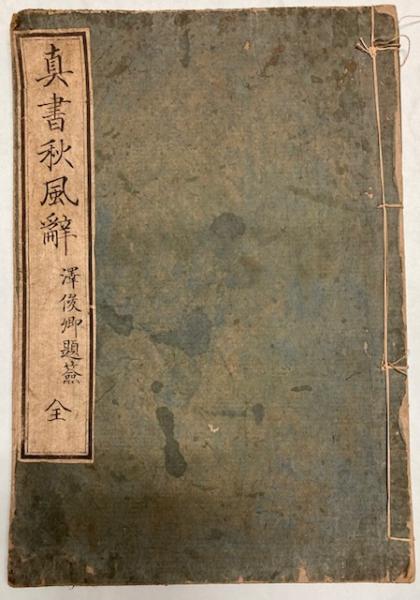 真書秋風辭
澤俊卿題簽
全